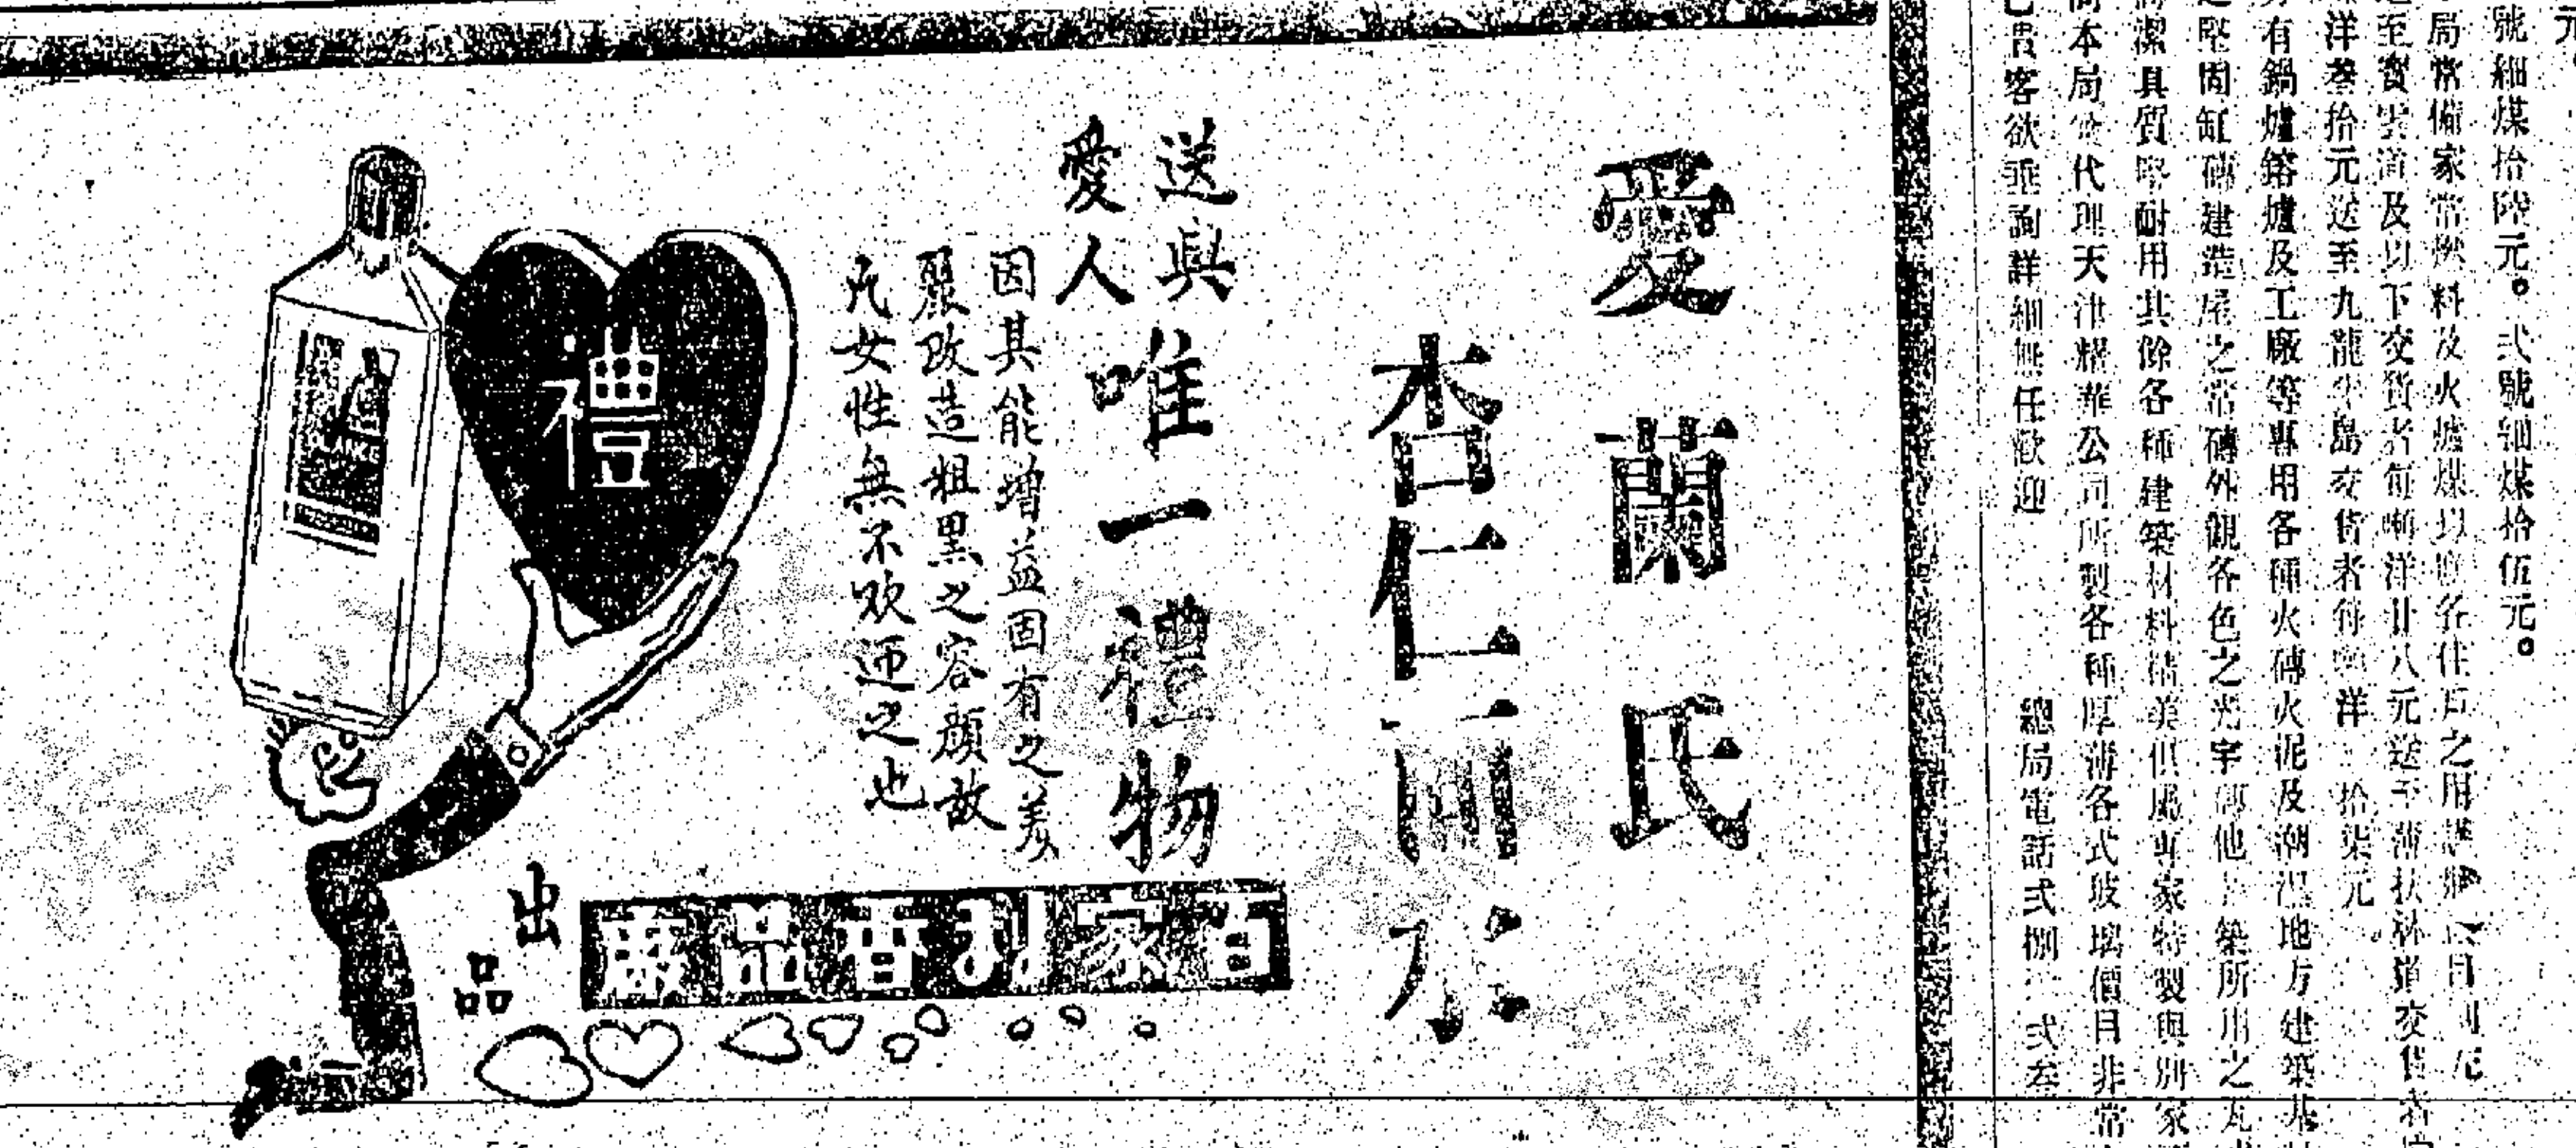 元。
號細煤拾陸元。弍號細煤拾伍元。
局常備家常燃料及火爐煤以應各住戶之用謹將 目列
至寶雲道及以下交貨者每噸洋廿八元送至薄扶林道交貨者
洋叁拾元送至九龍半島交貨者每噸洋 拾柒元
有鍋爐鎔爐及工廠等專用各種火磚火泥及潮濕地方建築
堅固缸磚建造屋之常磚外觀各色之光 他 築所用之瓦
潔具質堅耐用其餘各種建築材料精美俱屬專家特製與別家
本局 代理天津耀華公司所製各種厚薄各式玻璃價目非常
貴客欲垂詢詳細無任歡迎 總局電話弍捌 弍叁
愛蘭氏
杏仁雨水
送與
愛人
唯一禮物
因其能增益固有之美
麗改造粗黑之容顏故
凡女性無不欢迎之也
百家利香品廠
出品
禮